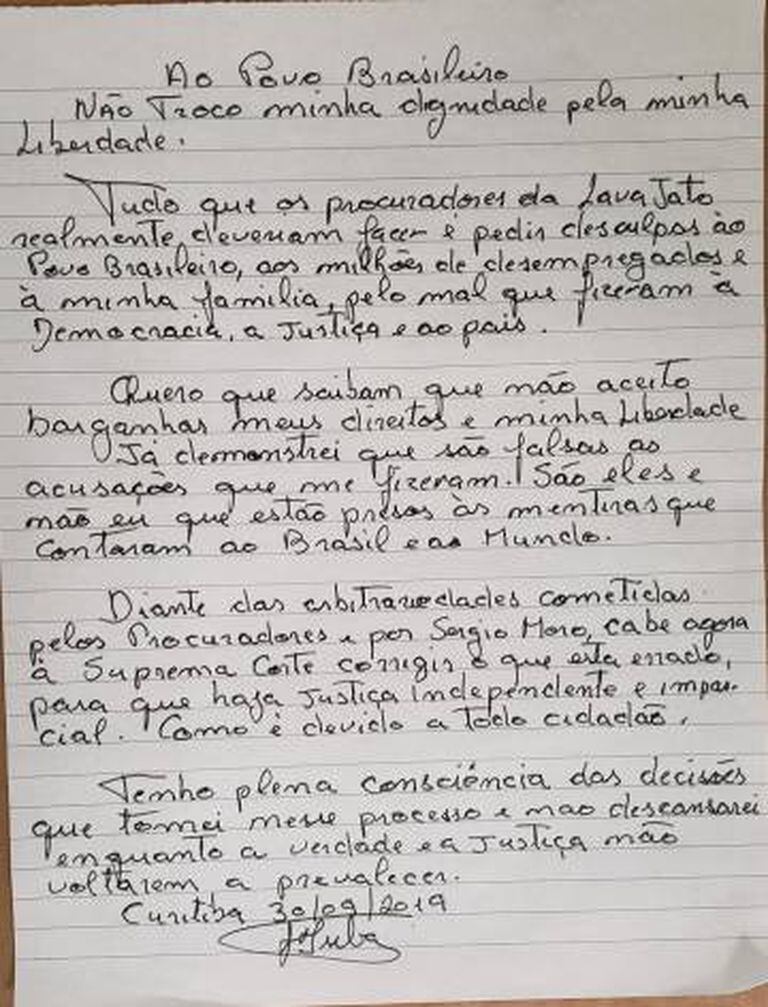 Ao Povo Brasileiro
Não Troco minha dignidade pela minha
Liberdade.
Tudo que os procuradores da Lava Jato
realmente deveriam fazer é pedir desculpas ao
Povo Brasileiro, aos milhões de desempregados e
à minha familia, pelo mal que fizeram à
Democracia, a Justiça e ao pais.
Quero que saibam que não aceito
barganhar meus direitos e minha Liberdade
Já demonstrei que são falsas as
acusações que me fizeram. São eles e
não eu que estão presos às mentiras que
Contaram ao Brasil e ao Mundo.
Diante das arbitrariedades cometidas
pelos Procuradores e por Sergio Moro, cabe agora
à Suprema Corte corrigir o que esta errado,
para que haja Justiça independente e impar-
cial. Como é devido a todo cidadão.
Tenho plena consciência das decisões
que tomei nesse processo e nao descansarei
enquanto a verdade e a Justiça não
voltarem a prevalecer.
Curitiba 30/09/2019
Lula